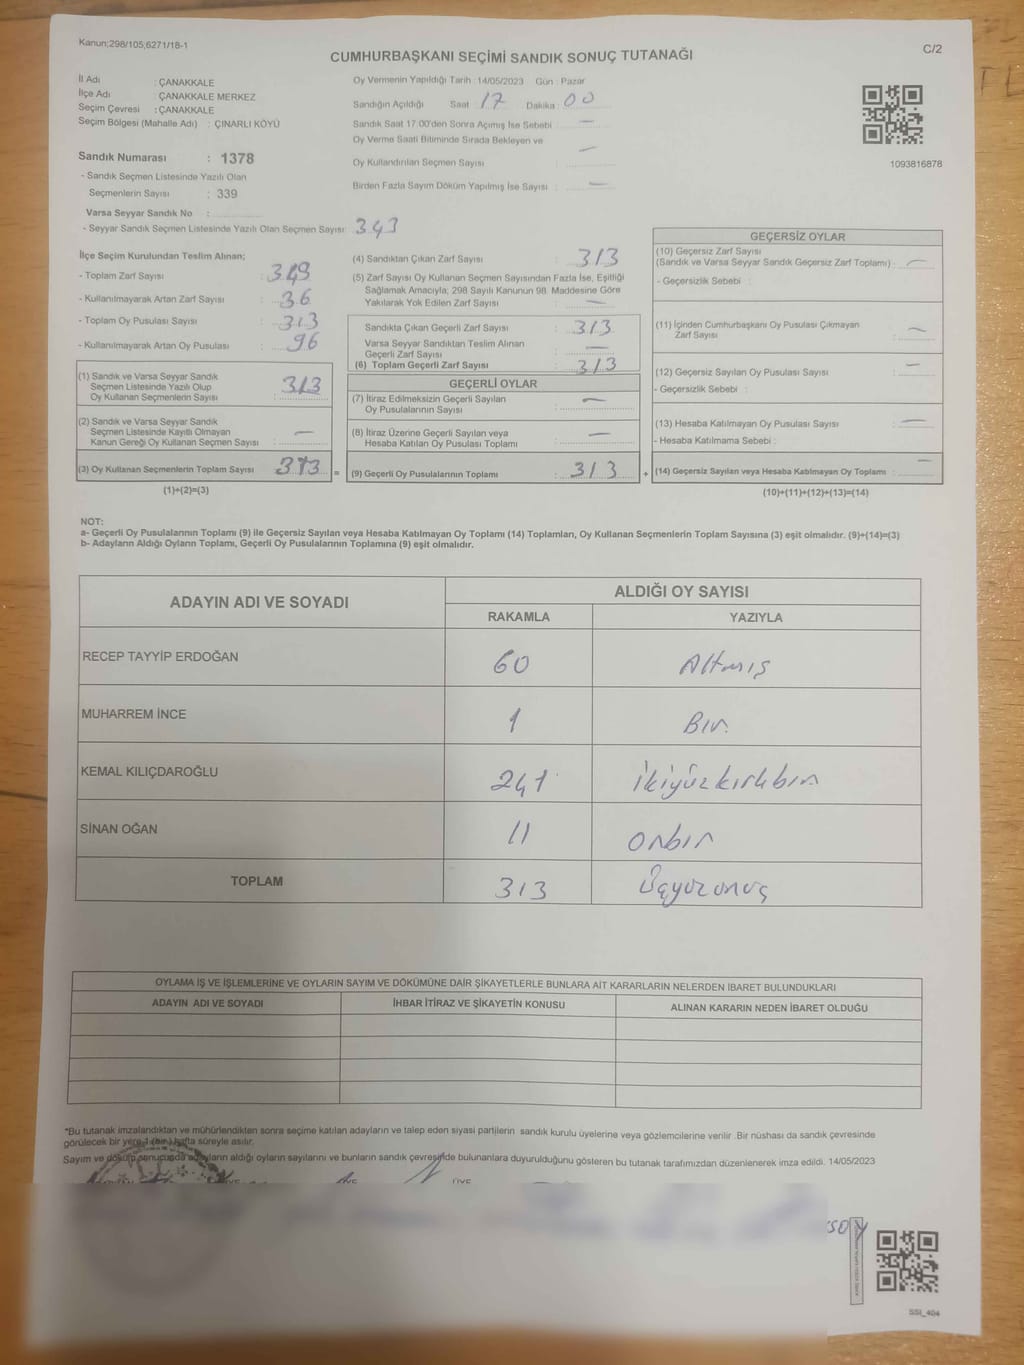 Kanun;298/105;6271/18-1
C/2
CUMHURBAŞKANI SEÇİMİ SANDIK SONUÇ TUTANAĞI
İl Adı : ÇANAKKALE
İlçe Adı : ÇANAKKALE MERKEZ
Seçim Çevresi : ÇANAKKALE
Seçim Bölgesi (Mahalle Adı) : ÇINARLI KÖYÜ
Sandık Numarası : 1378
- Sandık Seçmen Listesinde Yazılı Olan
Seçmenlerin Sayısı : 339
Varsa Seyyar Sandık No :
- Seyyar Sandık Seçmen Listesinde Yazılı Olan Seçmen Sayısı: 343
Oy Vermenin Yapıldığı Tarih : 14/05/2023 Gün : Pazar
Sandığın Açıldığı Saat : 17 Dakika : 00
Sandık Saat 17:00'den Sonra Açımış İse Sebebi : —
Oy Verme Saati Bitiminde Sırada Bekleyen ve
Oy Kullandırılan Seçmen Sayısı : —
Birden Fazla Sayım Döküm Yapılmış İse Sayısı : —
1093816878
İlçe Seçim Kurulundan Teslim Alınan;
- Toplam Zarf Sayısı : 349
- Kullanılmayarak Artan Zarf Sayısı : 36
- Toplam Oy Pusulası Sayısı : 313
- Kullanılmayarak Artan Oy Pusulası : 96
(1) Sandık ve Varsa Seyyar Sandık
Seçmen Listesinde Yazılı Olup
Oy Kullanan Seçmenlerin Sayısı : 313
(2) Sandık ve Varsa Seyyar Sandık
Seçmen Listesinde Kayıtlı Olmayan
Kanun Gereği Oy Kullanan Seçmen Sayısı : —
(3) Oy Kullanan Seçmenlerin Toplam Sayısı : 313 =
(1)+(2)=(3)
(4) Sandıktan Çıkan Zarf Sayısı : 313
(5) Zarf Sayısı Oy Kullanan Seçmen Sayısından Fazla İse, Eşitliği
Sağlamak Amacıyla; 298 Sayılı Kanunun 98. Maddesine Göre
Yakılarak Yok Edilen Zarf Sayısı : —
Sandıkta Çıkan Geçerli Zarf Sayısı : 313
Varsa Seyyar Sandıktan Teslim Alınan
Geçerli Zarf Sayısı : —
(6) Toplam Geçerli Zarf Sayısı : 313
GEÇERLİ OYLAR
(7) İtiraz Edilmeksizin Geçerli Sayılan
Oy Pusulalarının Sayısı : —
(8) İtiraz Üzerine Geçerli Sayılan veya
Hesaba Katılan Oy Pusulası Toplamı : —
(9) Geçerli Oy Pusulalarının Toplamı : 313 +
GEÇERSİZ OYLAR
(10) Geçersiz Zarf Sayısı
(Sandık ve Varsa Seyyar Sandık Geçersiz Zarf Toplamı) : —
- Geçersizlik Sebebi :
(11) İçinden Cumhurbaşkanı Oy Pusulası Çıkmayan
Zarf Sayısı : —
(12) Geçersiz Sayılan Oy Pusulası Sayısı : —
- Geçersizlik Sebebi :
(13) Hesaba Katılmayan Oy Pusulası Sayısı : —
- Hesaba Katılmama Sebebi :
(14) Geçersiz Sayılan veya Hesaba Katılmayan Oy Toplamı : —
(10)+(11)+(12)+(13)=(14)
NOT:
a- Geçerli Oy Pusulalarının Toplamı (9) ile Geçersiz Sayılan veya Hesaba Katılmayan Oy Toplamı (14) Toplamları, Oy Kullanan Seçmenlerin Toplam Sayısına (3) eşit olmalıdır. (9)+(14)=(3)
b- Adayların Aldığı Oyların Toplamı, Geçerli Oy Pusulalarının Toplamına (9) eşit olmalıdır.
ADAYIN ADI VE SOYADI
ALDIĞI OY SAYISI
RAKAMLA YAZIYLA
RECEP TAYYİP ERDOĞAN 60 Altmış
MUHARREM İNCE 1 Bir.
KEMAL KILIÇDAROĞLU 241 ikiyüzkırkbir
SİNAN OĞAN 11 onbir
TOPLAM 313 Üçyüzonüç
OYLAMA İŞ VE İŞLEMLERİNE VE OYLARIN SAYIM VE DÖKÜMÜNE DAİR ŞİKAYETLERLE BUNLARA AİT KARARLARIN NELERDEN İBARET BULUNDUKLARI
ADAYIN ADI VE SOYADI İHBAR İTİRAZ VE ŞİKAYETİN KONUSU ALINAN KARARIN NEDEN İBARET OLDUĞU
*Bu tutanak imzalandıktan ve mühürlendikten sonra seçime katılan adayların ve talep eden siyasi partilerin sandık kurulu üyelerine veya gözlemcilerine verilir .Bir nüshası da sandık çevresinde
görülecek bir yere 1 (bir) hafta süreyle asılır.
Sayım ve döküm sonucunda adayların aldığı oyların sayılarını ve bunların sandık çevresinde bulunanlara duyurulduğunu gösteren bu tutanak tarafımızdan düzenlenerek imza edildi. 14/05/2023
SSİ_404